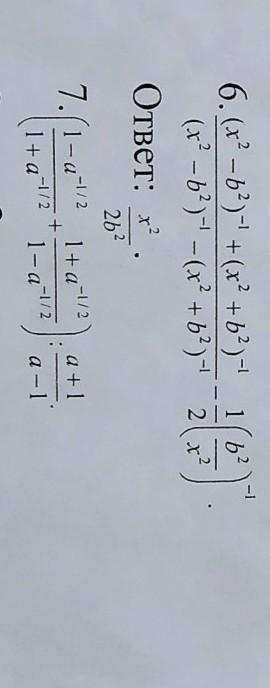 6. ((x² − b²)⁻¹ + (x² + b²)⁻¹)/((x² − b²)⁻¹ − (x² + b²)⁻¹) − 1/2 (b²/x²)⁻¹.
Ответ: x²/2b².
7. ((1 − a^(−1/2))/(1 + a^(−1/2)) + (1 + a^(−1/2))/(1 − a^(−1/2))) : (a + 1)/(a − 1).